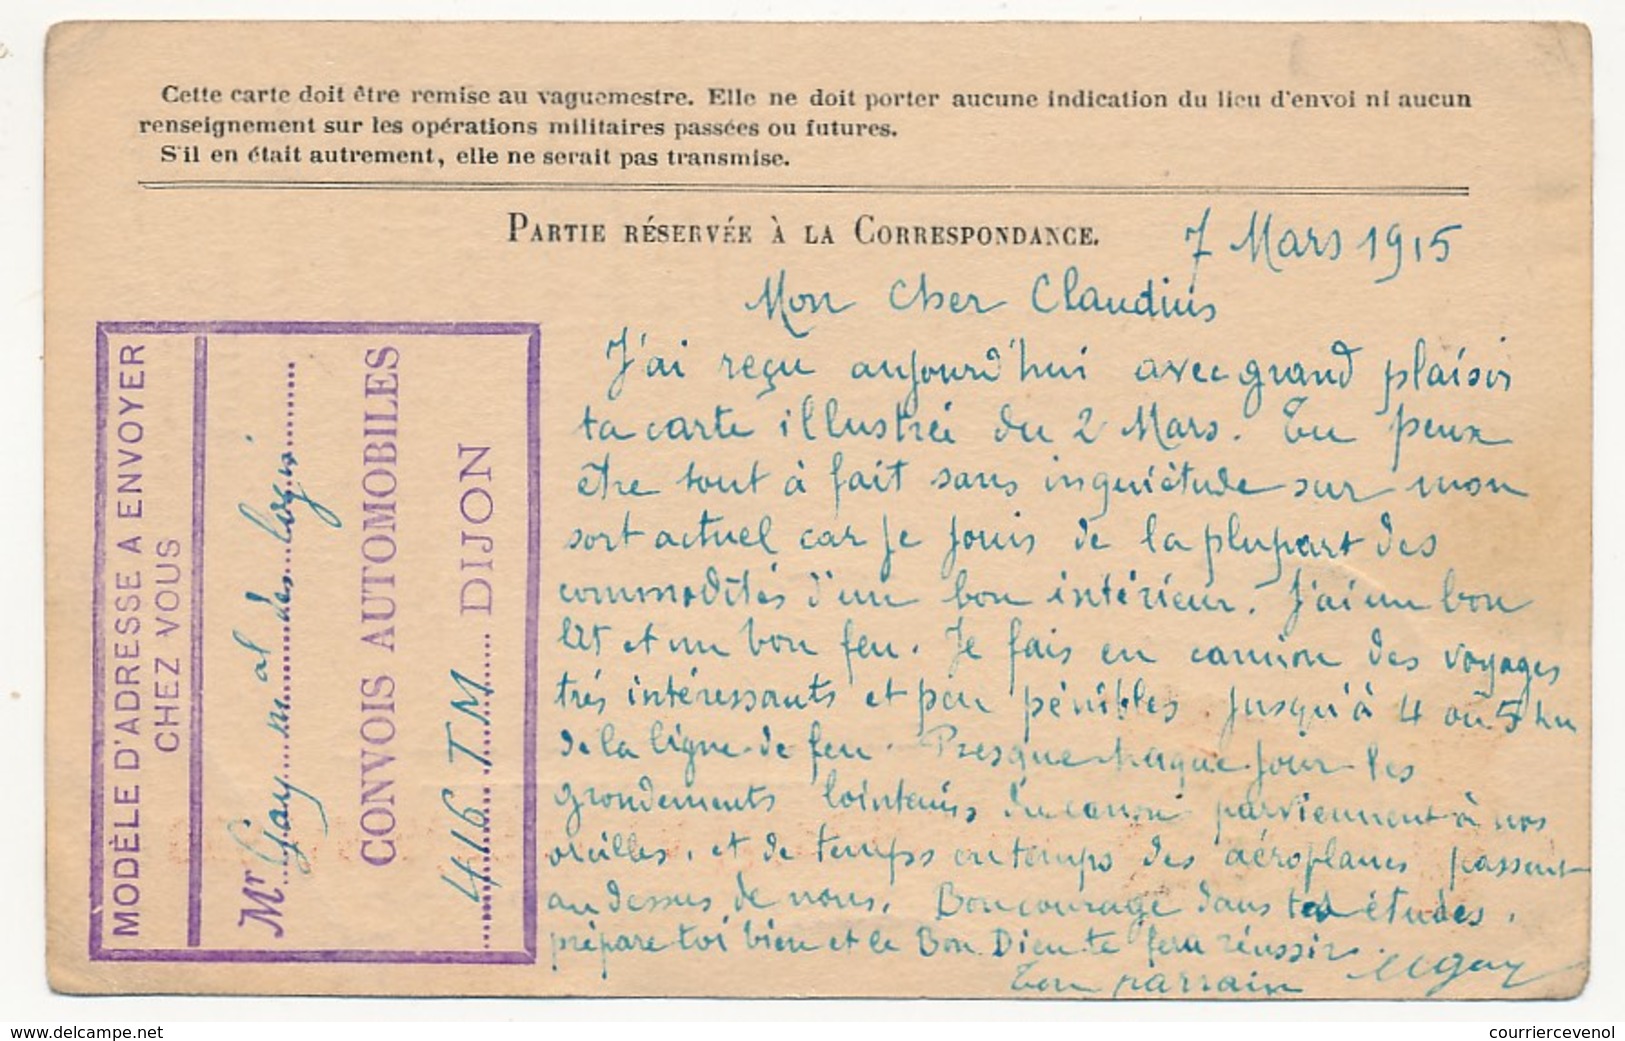 Cette carte doit être remise au vaguemestre. Elle ne doit porter aucune indication du lieu d'envoi ni aucun
renseignement sur les opérations militaires passées ou futures.
S'il en était autrement, elle ne serait pas transmise.
PARTIE RÉSERVÉE À LA CORRESPONDANCE.
7 Mars 1915
Mon Cher Claudius
J'ai reçu aujourd'hui avec grand plaisir
ta carte illustrée du 2 Mars. Tu peux
être tout à fait sans inquiétude sur mon
sort actuel car je jouis de la plupart des
commodités d'un bon intérieur. J'ai un bon
lit et un bon feu. Je fais en camion des voyages
très intéressants et peu pénibles jusqu'à 4 ou 5 km
de la ligne de feu. Presque chaque jour les
grondements lointains du canon parviennent à nos
oreilles, et de temps en temps des aéroplanes passent
au dessus de nous. Bon courage dans tes études,
prépare toi bien et le Bon Dieu te fera réussir.
Ton parrain Gay
MODÈLE D'ADRESSE A ENVOYER
CHEZ VOUS
Mr Gay mal des logis
CONVOIS AUTOMOBILES
416 T.M DIJON
www.delcampe.net
courriercevenol